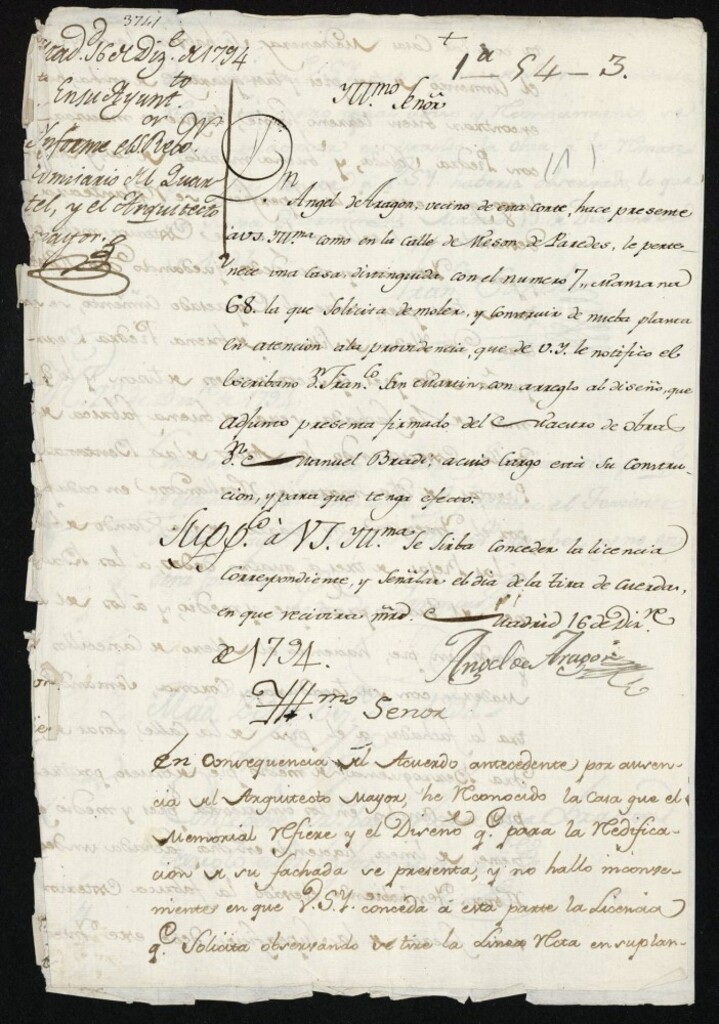 3741
Mad.d 16 de Diz.e de 1794
En su Ayunt.to
Informe el S.or D.n Reg.or
Comisario del Quar-
tel, y el Arquitecto
mayor.
+
1a 54-3.
Yll.mo Señor
D.n Angel de Aragon, vecino de esta corte, hace presente
a V.S. Yll.ma como en la calle de Meson de Paredes, le perte-
nece una casa distinguida con el numero 7,, Manzana
68. la que solicita demoler, y construir de nueba planta
en atencion a la providencia, que de V.Y. le notifico el
Escribano D.n Fran.co Sn Martin, con arreglo al diseño, que
adjunto presenta firmado del Maestro de obra
D.n Manuel Bradi, a cuio cargo está su constru-
cion, y para que tenga efecto:
Supp.co à V.S. Yll.ma Se sirba conceder la licencia
correspondiente, y Señalar el dia de la tira de Cuerda,
en que recivira mrd. Madrid 16 de Diz.re
de 1794.
Angel de Aragon
Yll.mo Señor
En consequencia del Acuerdo antecedente por ausen-
cia del Arquitecto Mayor, he Reconocido la Casa que el
Memorial refiere y el Diseño q.e para la Redifica-
cion de su fachada se presenta, y no hallo inconve-
nientes en que V.S.Y. conceda à esta parte la Licencia
q.e Solicita observando se tire la Linea Recta en su plan-